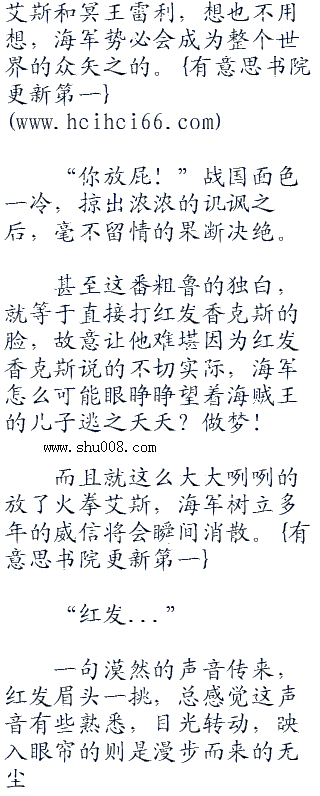 艾斯和冥王雷利，想也不用
想，海军势必会成为整个世
界的众矢之的。{有意思书院
更新第一}
(www.hcihci66.com)
“你放屁！”战国面色
一冷，掠出浓浓的讥讽之
后，毫不留情的果断决绝。
甚至这番粗鲁的独白，
就等于直接打红发香克斯的
脸，故意让他难堪因为红发
香克斯说的不切实际，海军
怎么可能眼睁睁望着海贼王
的儿子逃之夭夭？做梦！
www.shu008.com
而且就这么大大咧咧的
放了火拳艾斯，海军树立多
年的威信将会瞬间消散。{有
意思书院更新第一}
“红发...”
一句漠然的声音传来，
红发眉头一挑，总感觉这声
音有些熟悉，目光转动，映
入眼帘的则是漫步而来的无
尘